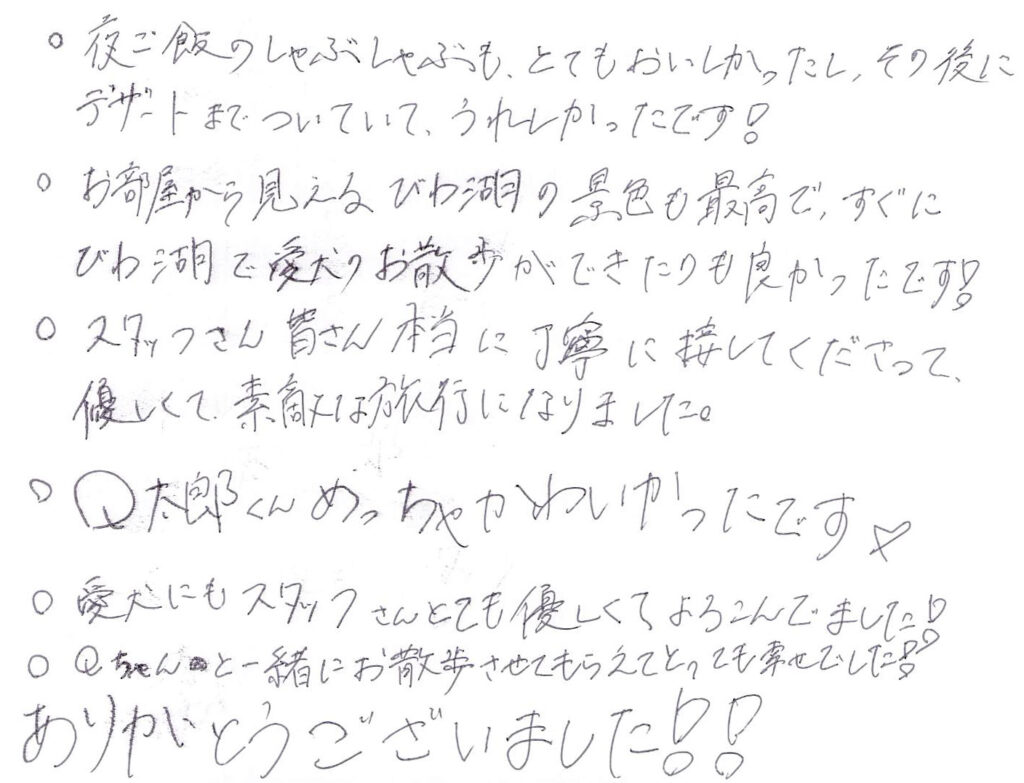 ○ 夜ご飯のしゃぶしゃぶも、とてもおいしかったし、その後に
デザートまでついていて、うれしかったです!
○ お部屋から見えるびわ湖の景色も最高で、すぐに
びわ湖で愛犬のお散歩ができたりも良かったです!
○ スタッフさん皆さん本当に丁寧に接してくださって、
優しくて、素敵な旅行になりました。
○ Q太郎くんめっちゃかわいかったです♡
○ 愛犬にもスタッフさんとても優しくてよろこんでました!
○ Qちゃんと一緒にお散歩させてもらえてとっても幸せでした!!
ありがとうございました!!